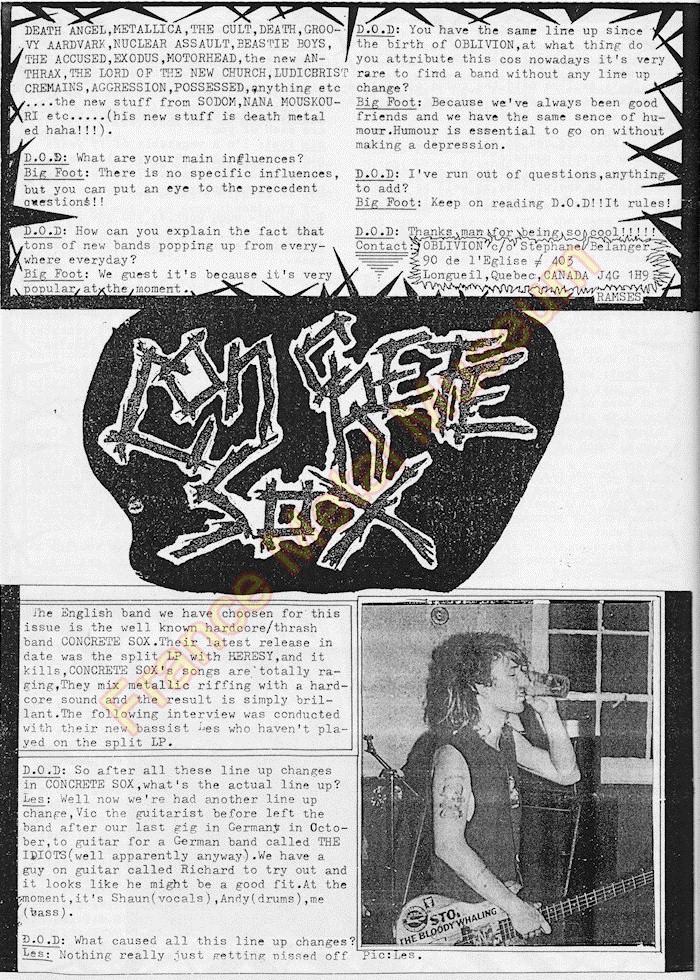 DEATH ANGEL,METALLICA,THE CULT,DEATH,GROO-
VY AARDVARK,NUCLEAR ASSAULT,BEASTIE BOYS,
THE ACCUSED,EXODUS,MOTORHEAD,the new AN-
THRAX,THE LORD OF THE NEW CHURCH,LUDICHRIST
CREMAINS,AGGRESSION,POSSESSED,anything etc
....the new stuff from SODOM,NANA MOUSKOU-
RI etc.....(his new stuff is death metal
ed haha!!!).
D.O.D: What are your main influences?
Big Foot: There is no specific influences,
but you can put an eye to the precedent
questions!!
D.O.D: How can you explain the fact that
tons of new bands popping up from every-
where everyday?
Big Foot: We guest it's because it's very
popular at the moment.
D.O.D: You have the same line up since
the birth of OBLIVION,at what thing do
you attribute this cos nowadays it's very
rare to find a band without any line up
change?
Big Foot: Because we've always been good
friends and we have the same sence of hu-
mour.Humour is essential to go on without
making a depression.
D.O.D: I've run out of questions,anything
to add?
Big Foot: Keep on reading D.O.D!!It rules!
D.O.D: Thanks man for being so cool!!!!!
Contact: OBLIVION c/o Stephane Belanger
90 de l'Eglise ≠ 403
Longueil,Quebec,CANADA J4G 1H9
RAMSES
CONCRETE
SOX
The English band we have choosen for this
issue is the well known hardcore/thrash
band CONCRETE SOX.Their latest release in
date was the split LP with HERESY,and it
kills,CONCRETE SOX's songs are totally ra-
ging,They mix metallic riffing with a hard-
core sound and the result is simply bril-
lant.The following interview was conducted
with their new bassist Les who haven't pla-
yed on the split LP.
D.O.D: So after all these line up changes
in CONCRETE SOX,what's the actual line up?
Les: Well now we're had another line up
change,Vic the guitarist before left the
band after our last gig in Germany in Octo-
ber,to guitar for a German band called THE
IDIOTS(well apparently anyway).We have a
guy on guitar called Richard to try out and
it looks like he might be a good fit.At the
moment,it's Shaun(vocals),Andy(drums),me
(bass).
D.O.D: What caused all this line up changes?
Les: Nothing really just getting pissed off
STO
THE BLOODY WHALING
Pic:Les.
France Metal Museum